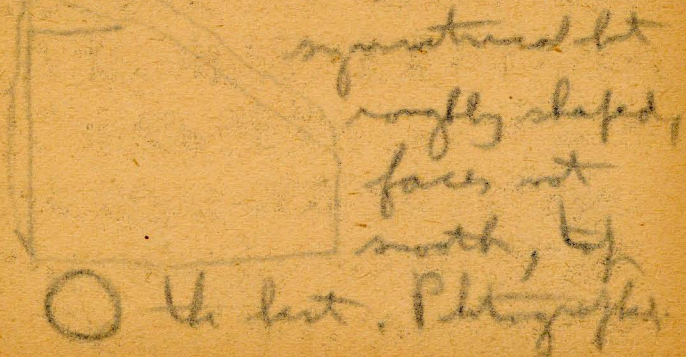 symmetrical but
roughly shaped,
faces not
smooth, top
the best. Photographed.